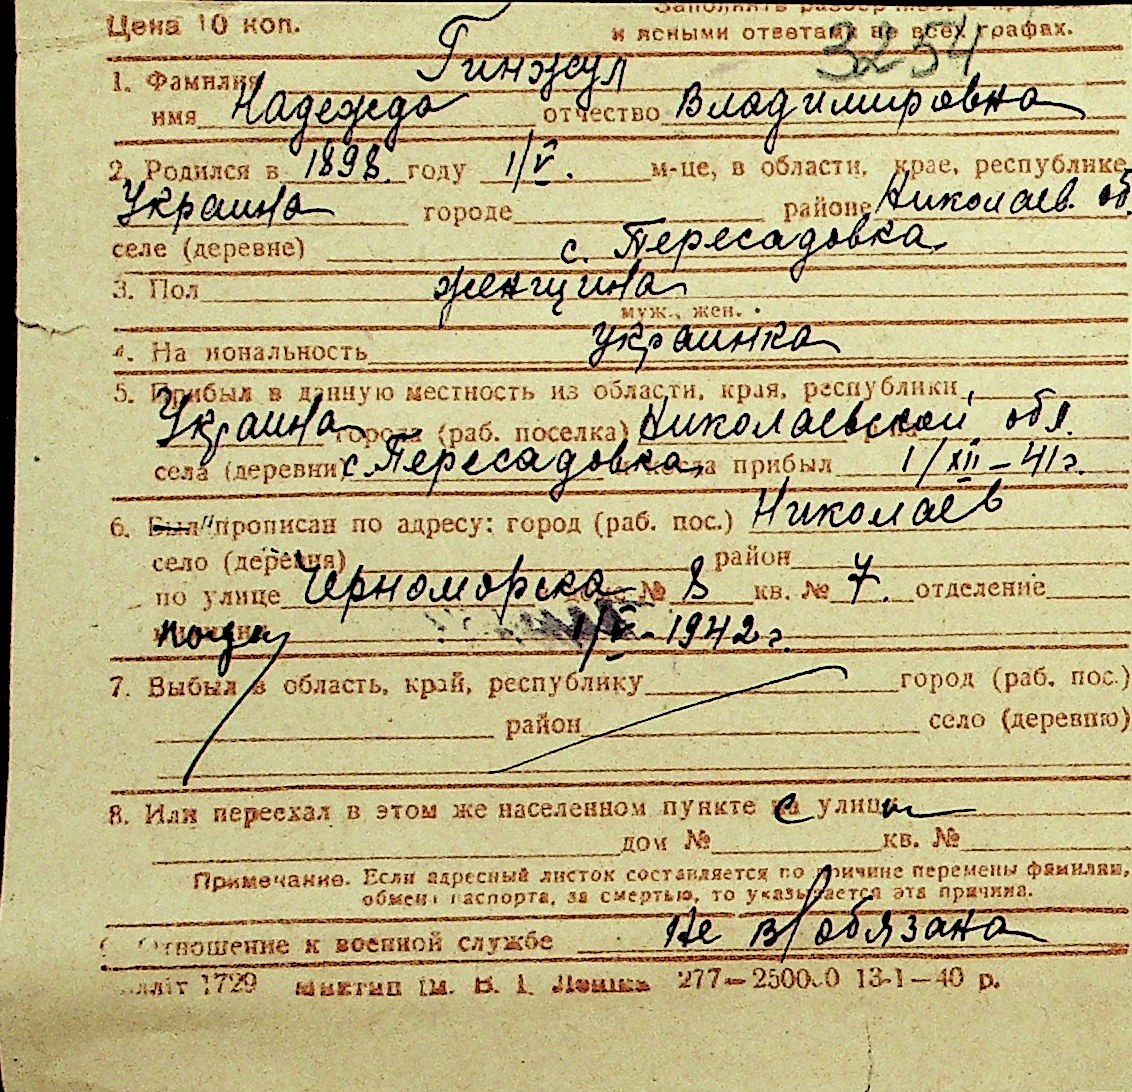 Цена 10 коп.
и ясными ответами во всех графах.
3254
1. Фамилия Гинжул
имя Надежда отчество Владимировна
2. Родился в 1898 году 1/V. м-це, в области, крае, республике
Украина городе районе Николаев. об.
селе (деревне) с. Пересадовка
3. Пол женщина
муж., жен.
4. Национальность украинка
5. Прибыл в данную местность из области, края, республики
Украина города (раб. поселка) Николаевской обл.
села (деревни) с. Пересадовка, прибыл 1/XII-41г.
6. Был прописан по адресу: город (раб. пос.) Николаев
село (деревня) район
по улице Черноморска № 8 кв. № 7. отделение
1/V-1942г.
7. Выбыл в область, край, республику город (раб. пос.)
район село (деревню)
8. Или переехал в этом же населенном пункте с улицы
дом № кв. №
Примечание. Если адресный листок составляется по причине перемены фамилии,
обмена паспорта, за смертью, то указывается эта причина.
Отношение к военной службе Не в/обязана
1729 277—250000 13-1—40 р.